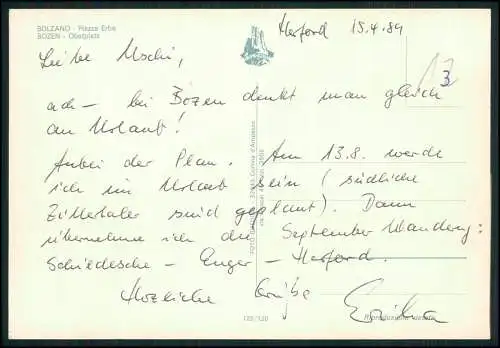 BOLZANO - Piazza Erbe
BOZEN - Obstplatz
Herford 15.4.89
Liebe Uschi,
13
ach - bei Bozen denkt man gleich
an Urlaub!
Anbei der Plan. Am 13.8. werde
ich im Urlaub sein (südliche
Zillertaler sind geplant). Dann
übernehme ich die September Wanderung:
Schiedesche - Enger - Herford.
Herzliche Grüße
Erika
125/120
Riproduzione vietata